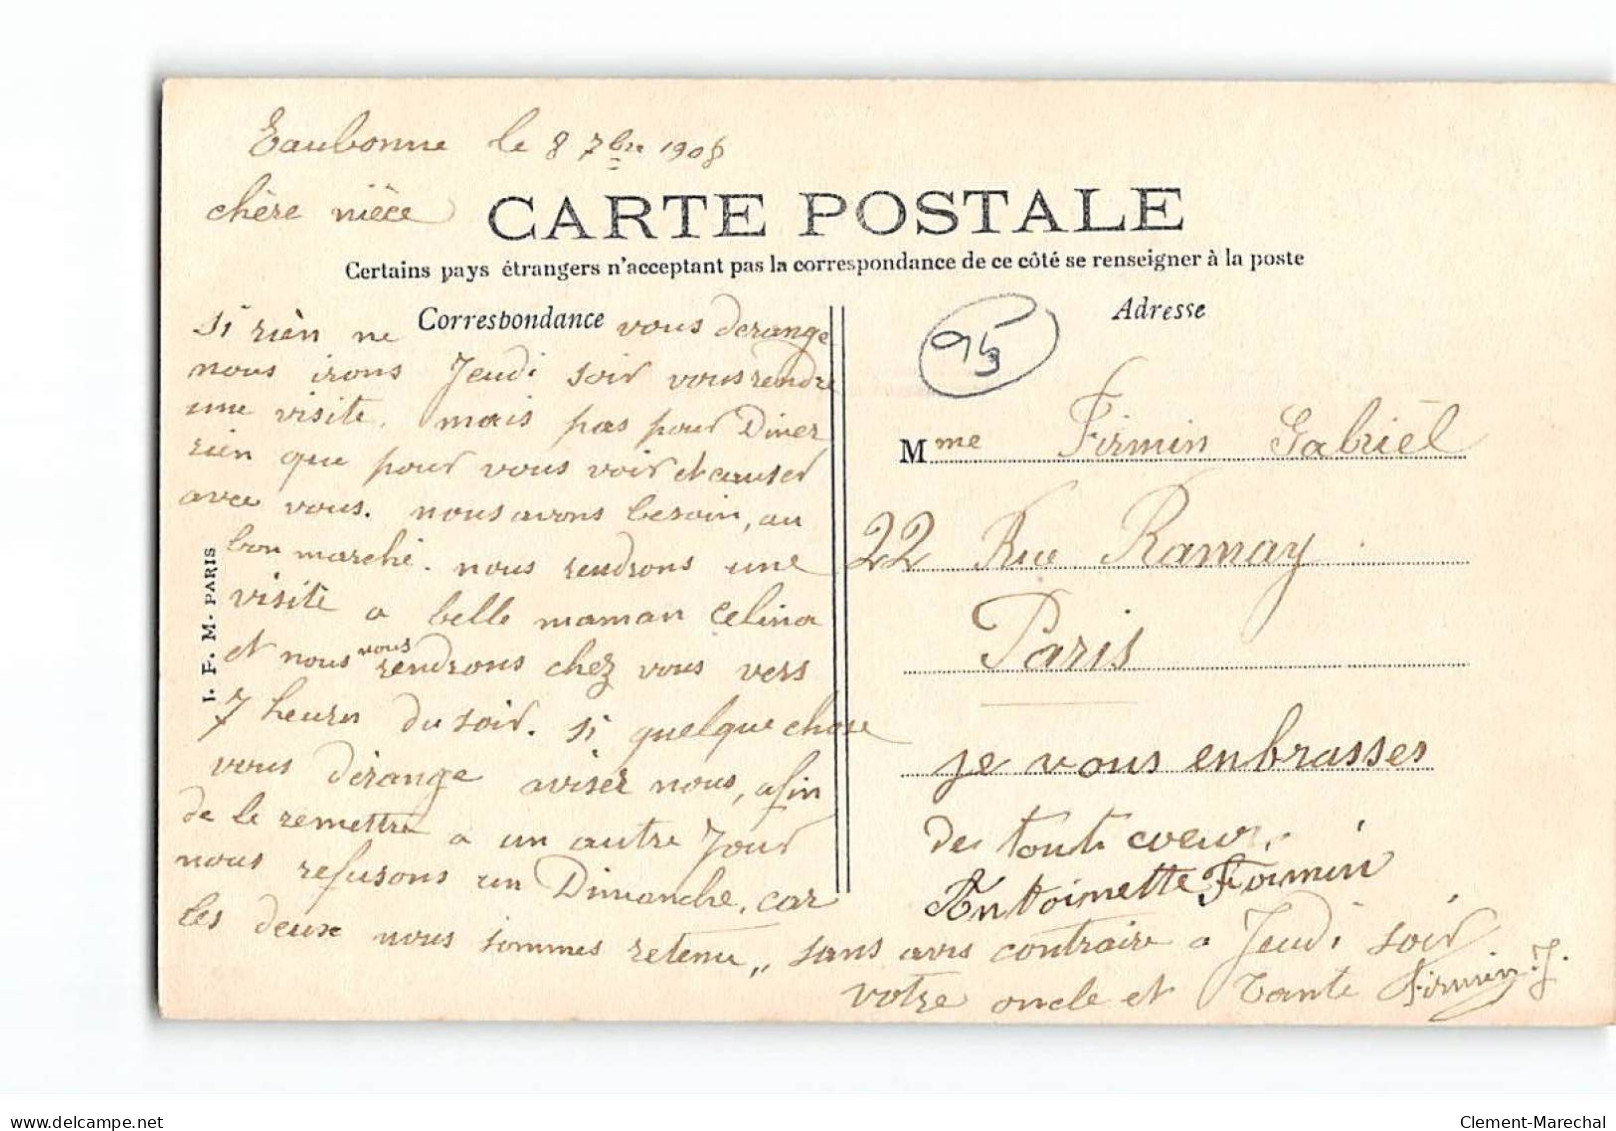 Eaubonne le 8 7bre 1908
chère nièce
CARTE POSTALE
Certains pays étrangers n'acceptant pas la correspondance de ce côté se renseigner à la poste
Correspondance
Adresse
si rièn ne vous derange
nous irons Jeudi soir vous rendre
une visite. mais pas pour Diner
rien que pour vous voir et causer
avec vous. nous avons besoin, au
bon marché. nous rendrons une
visite a belle maman Celina
et nous nous rendrons chez vous vers
7 heures du soir. si quelque chose
vous dérange aviser nous, afin
de le remettre a un autre Jour
nous refusons un Dimanche, car
les deux nous sommes retenu,, sans avis contraire a Jeudi soir
votre oncle et Tante Firmin J.
95
Mme Firmin Gabriël
22 Rue Ramay
Paris
je vous enbrasses
de tout coeur,
Antoinette Firmin
I. P. M. PARIS
delcampe.net
Clement-Marechal